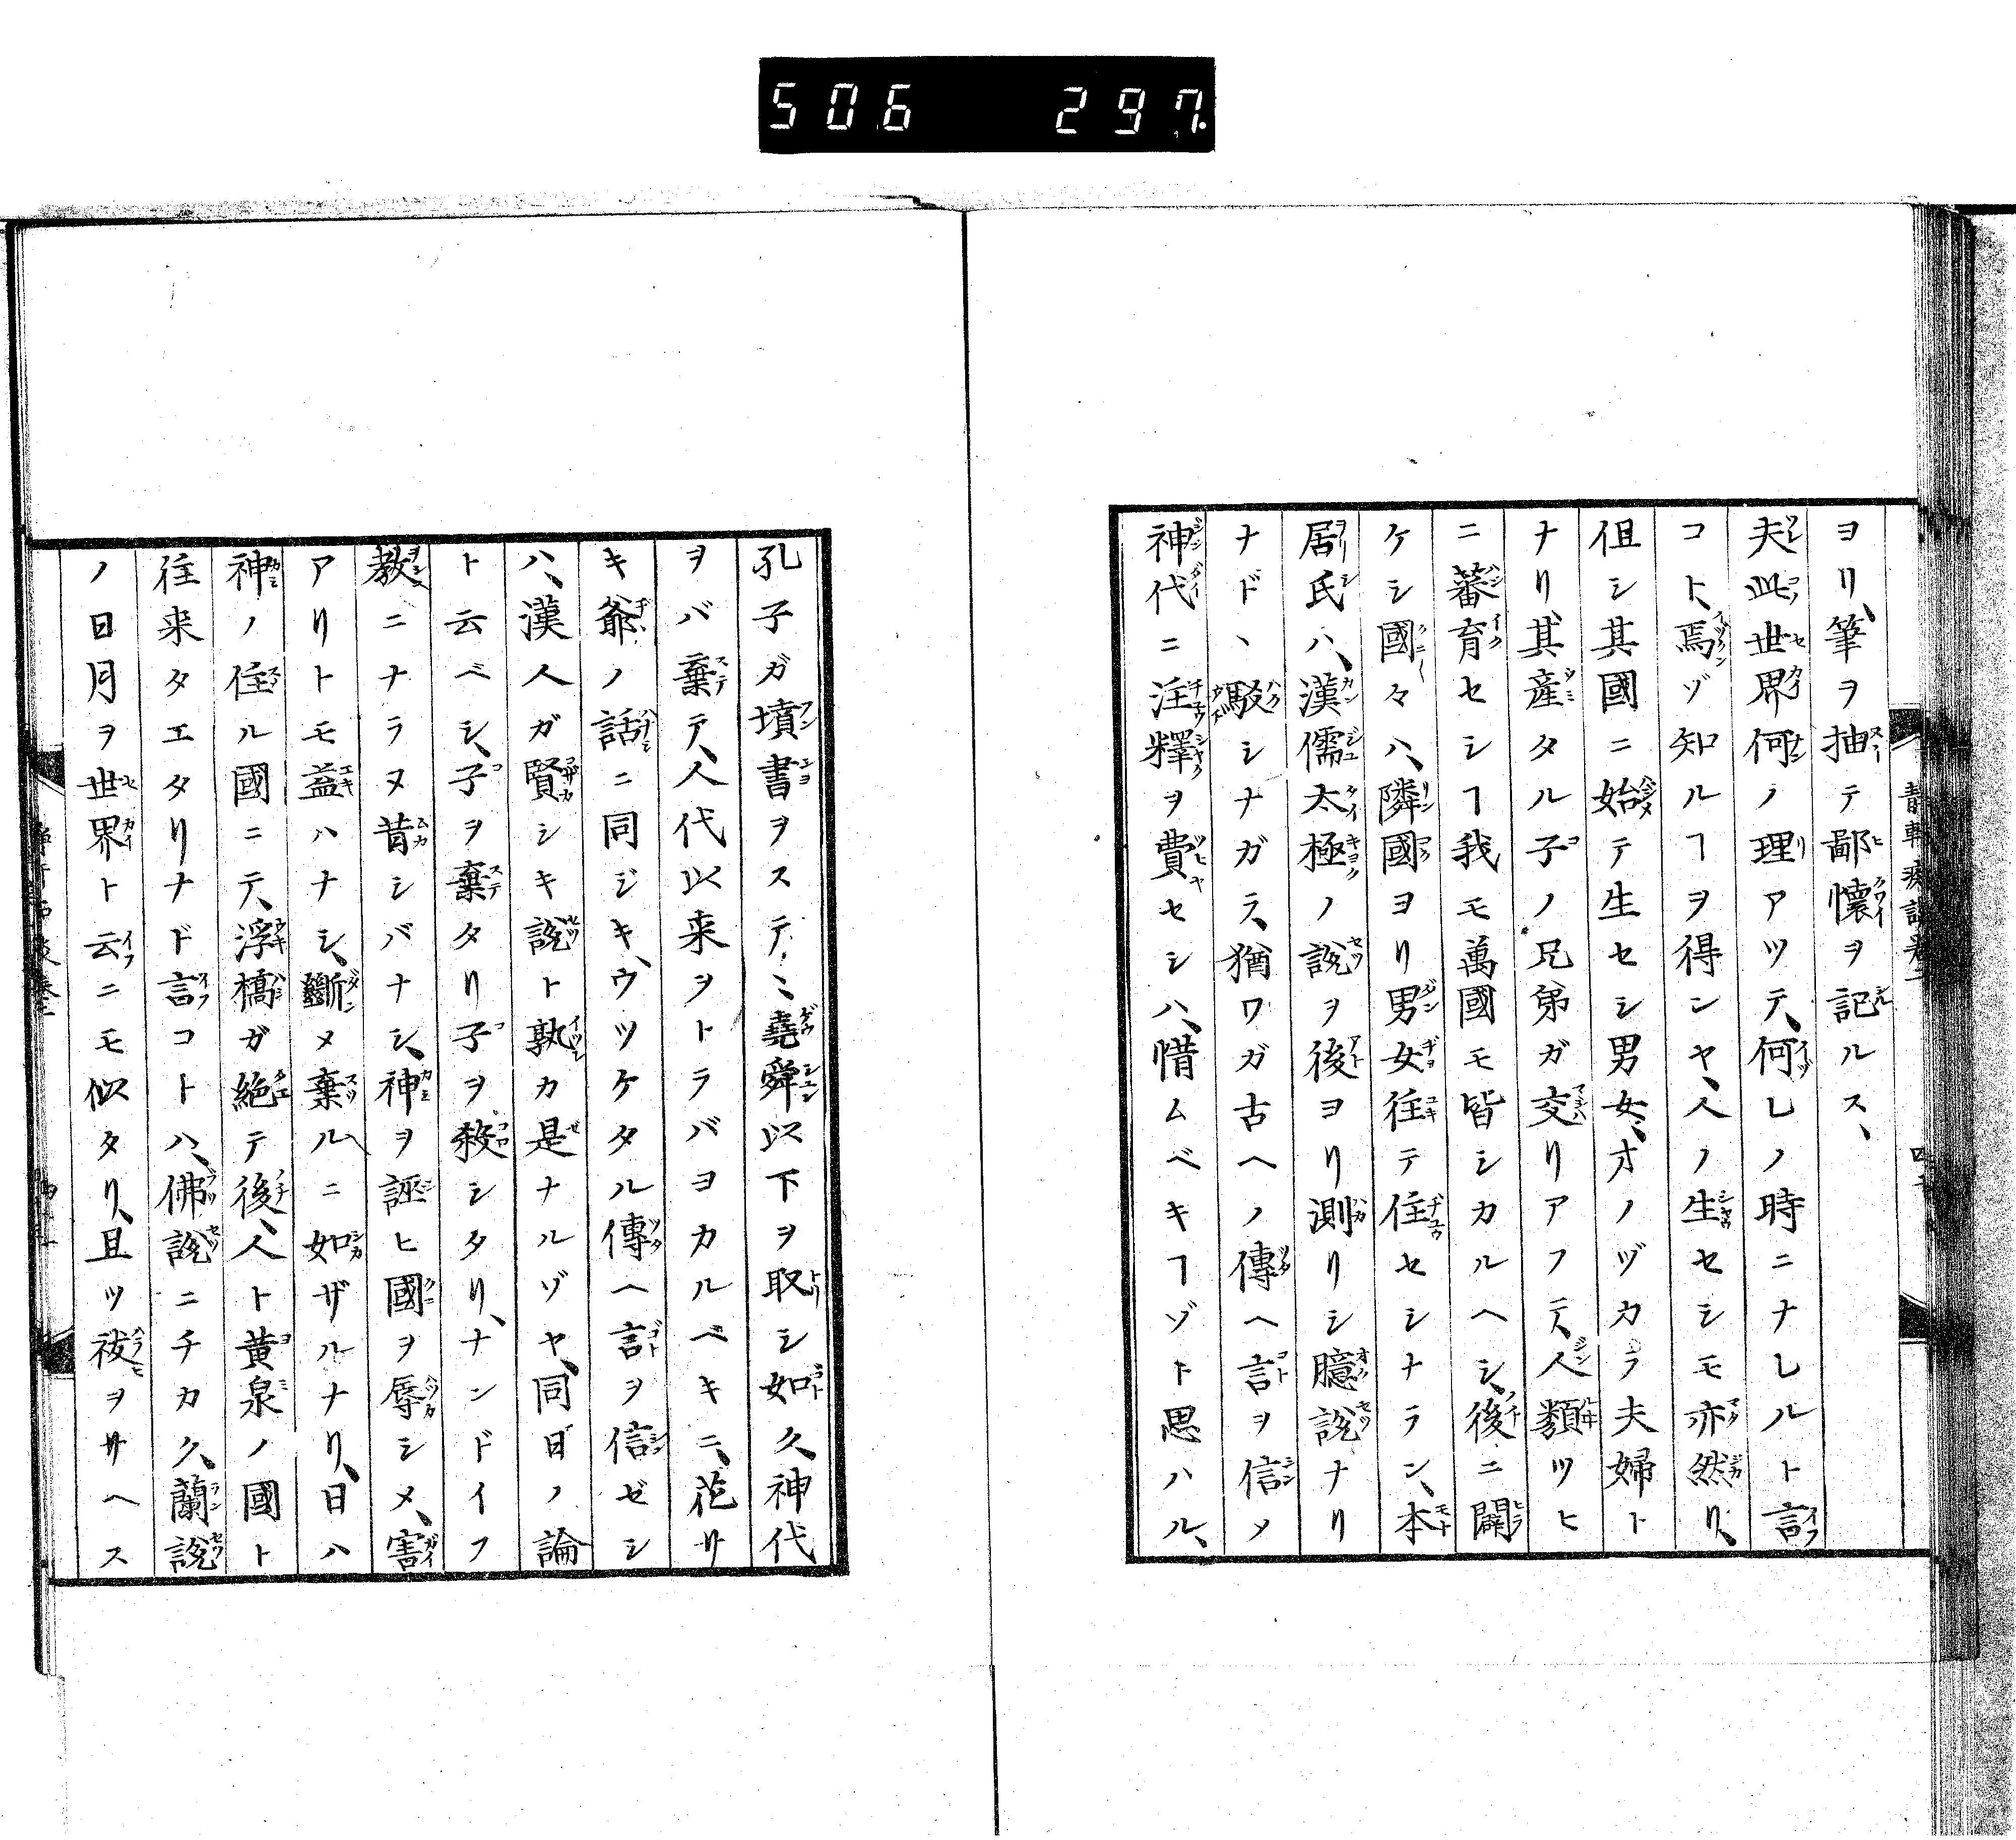 506 297
ヨリ筆ヲ抽テ鄙懷ヲ記ルス、
夫此世界何ノ理アツテ、何レノ時ニナレルト言
コト、焉ゾ知ルヿヲ得ンヤ、人ノ生セシモ亦然リ、
但シ其國ニ始テ生セシ男女、オノヅカラ夫婦ト
ナリ、其産タル子ノ兄弟ガ交リアフテ、人類ツヒ
ニ蕃育セシヿ我モ萬國モ皆シカルヘシ、後ニ闢
ケシ國々ハ、隣國ヨリ男女往テ住セシナラン、本
居氏ハ、漢儒太極ノ説ヲ後ヨリ測リシ臆説ナリ
ナド、駁シナガラ、猶ワガ古ヘノ傳ヘ言ヲ信メ
神代ニ注釋ヲ費セシハ、惜ムベキヿゾト思ハル、
孔子ガ墳書ヲステヽ堯舜以下ヲ取シ如久神代
ヲバ棄テ、人代以来ヲトラバヨカルベキニ、花サ
キ爺ノ話ニ同ジキ、ウツケタル傳ヘ言ヲ信ゼシ
ハ、漢人ガ賢シキ説ト孰カ是ナルゾヤ、同日ノ論
ト云ベシ、子ヲ棄タリ子ヲ殺シタリ、ナンドイフ
教ニナラヌ昔シバナシ、神ヲ誣ヒ國ヲ辱シメ、害
アリトモ益ハナシ、斷メ棄ルニ如ザルナリ、日ハ
神ノ住ル國ニテ、浮橋ガ絶テ後、人ト黄泉ノ國ト
往来タエタリナド言コトハ、佛説ニチカク、蘭説
ノ日月ヲ世界ト云ニモ似タリ、且ツ祓ヲサヘス